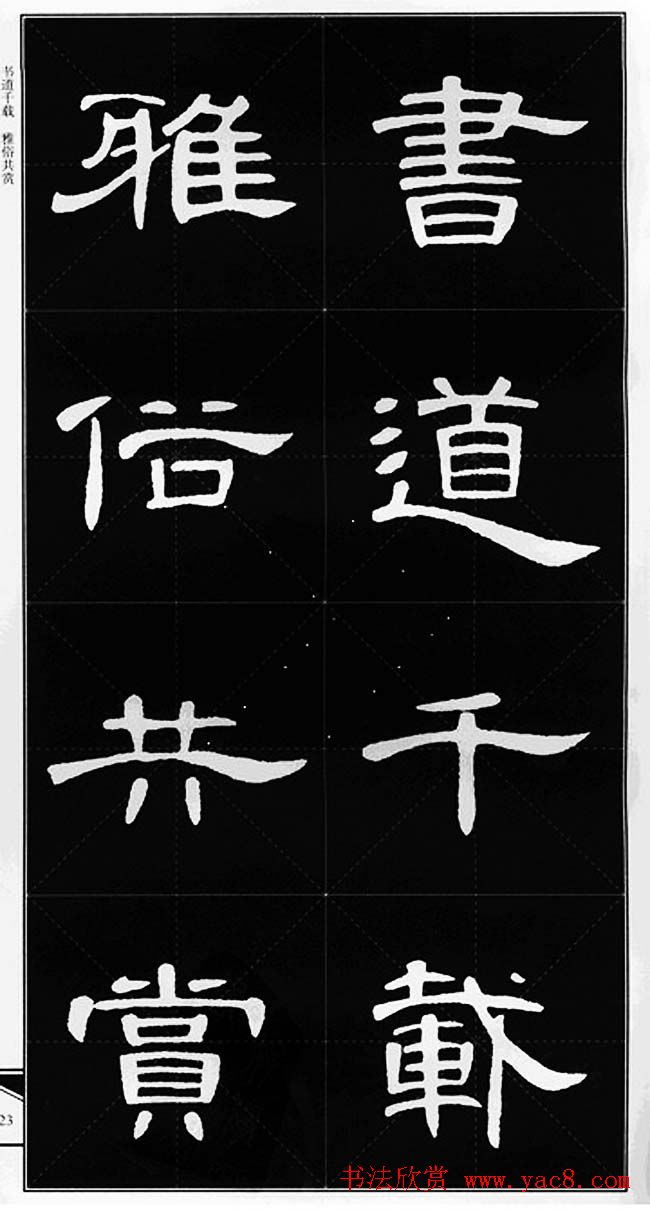 書道千載
雅俗共賞
书道千载 雅俗共赏
23
书法欣赏 www.yac8.com